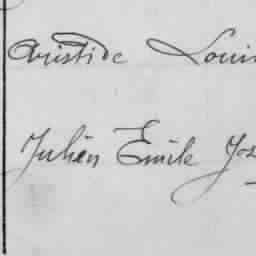 Aristide Louis
Julien Emile Jos